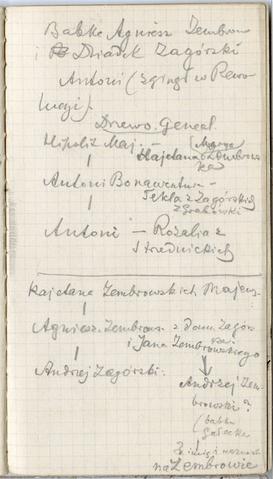 Babka Agniesz Zembrow
i Dziadek Zagórski
Antoni (zginął w Rewo
lucji).
Drzewo. Geneal.
Hipolit Maj. —
Kajetana Zembrows
ka)
Antoni Bonawentura —
Tekla z Zagórskich
Antoni — Rozalia z
Średnickich
Kajetana Zembrowskich Majew
Agniesz. Zembrow z dom. Zagór
i Jana Zembrowskiego
Andrzej Zagórski.
Andrzej Zem
browski?
(babka
na Zembrowie